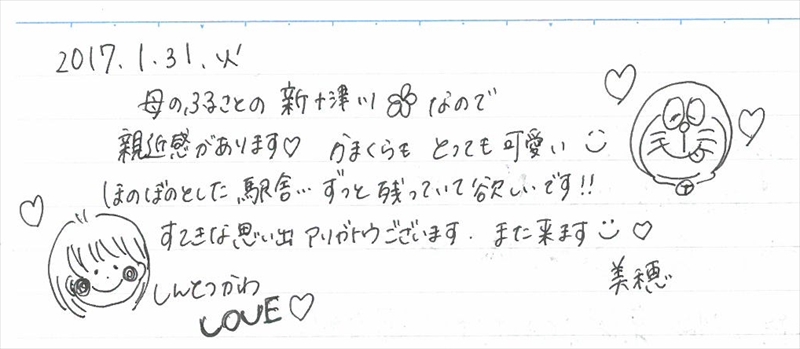 2017.1.31.火
母のふるさとの 新十津川 なので
親近感があります♡ かまくらも とっても可愛い
ほのぼのとした 駅舎… ずっと残っていて欲しいです!!
すてきな思い出 アリガトウございます. また来ます ♡
美穂
しんとつかわ
LOVE♡